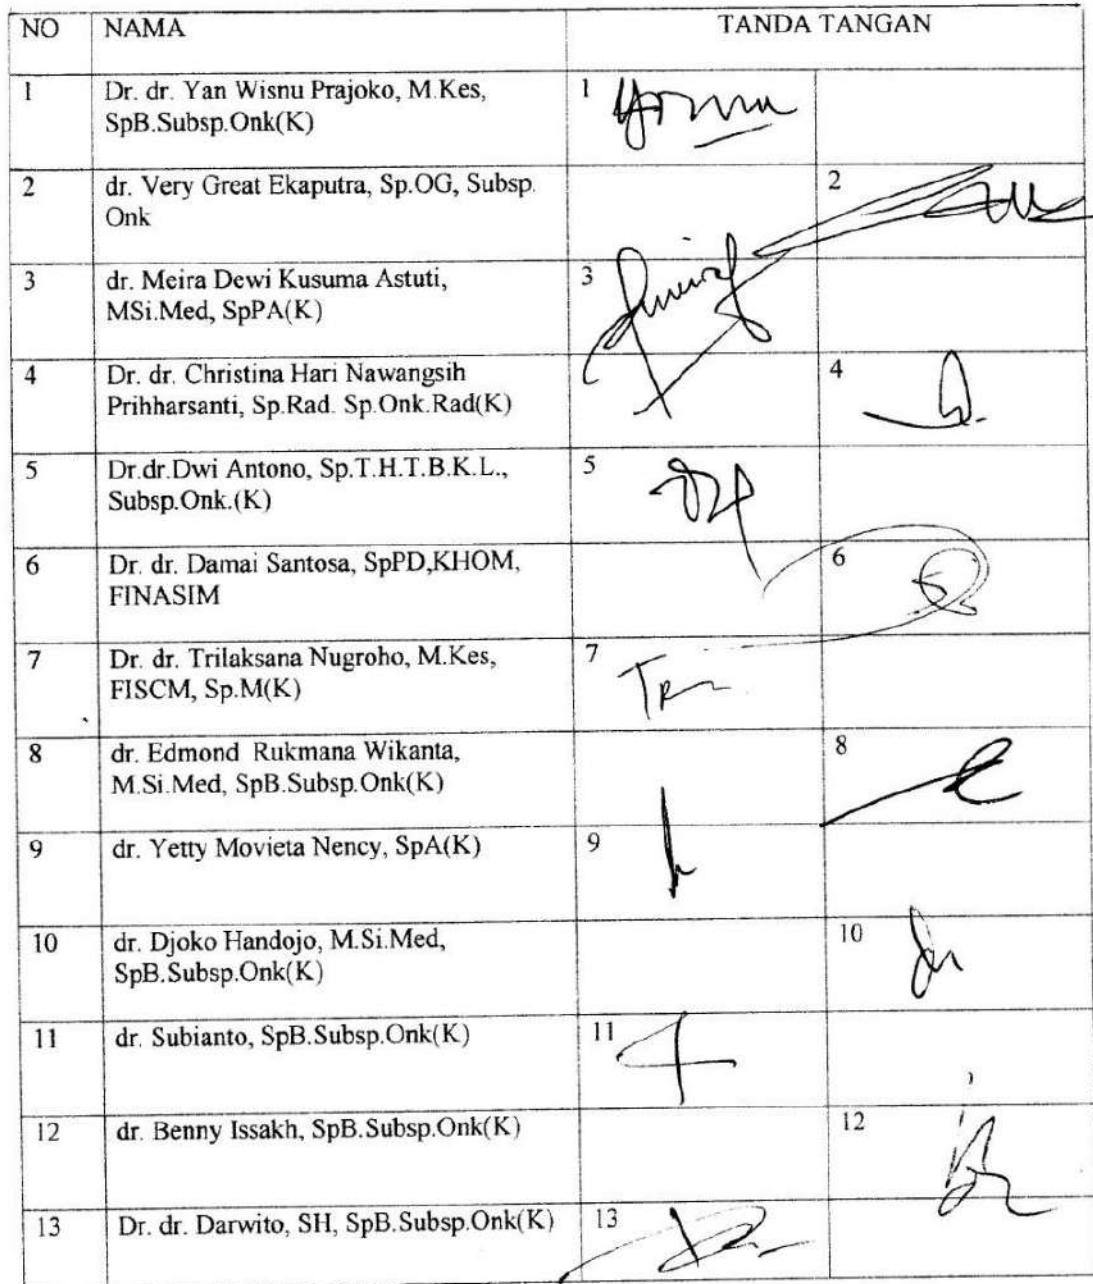 NO NAMA TANDA TANGAN
1 Dr. dr. Yan Wisnu Prajoko, M.Kes, 1
SpB.Subsp.Onk(K)
2 dr. Very Great Ekaputra, Sp.OG, Subsp. 2
Onk
3 dr. Meira Dewi Kusuma Astuti, 3
MSi.Med, SpPA(K)
4 Dr. dr. Christina Hari Nawangsih 4
Prihharsanti, Sp.Rad. Sp.Onk.Rad(K)
5 Dr.dr.Dwi Antono, Sp.T.H.T.B.K.L., 5
Subsp.Onk.(K)
6 Dr. dr. Damai Santosa, SpPD,KHOM, 6
FINASIM
7 Dr. dr. Trilaksana Nugroho, M.Kes, 7
FISCM, Sp.M(K)
8 dr. Edmond Rukmana Wikanta, 8
M.Si.Med, SpB.Subsp.Onk(K)
9 dr. Yetty Movieta Nency, SpA(K) 9
10 dr. Djoko Handojo, M.Si.Med, 10
SpB.Subsp.Onk(K)
11 dr. Subianto, SpB.Subsp.Onk(K) 11
12 dr. Benny Issakh, SpB.Subsp.Onk(K) 12
13 Dr. dr. Darwito, SH, SpB.Subsp.Onk(K) 13